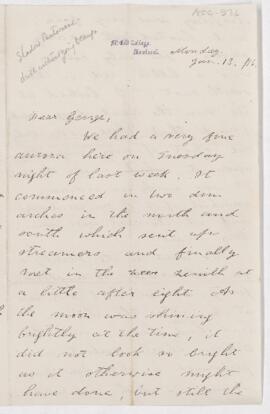 Monday.
Jan. 13.
Dear George,
We had a very fine
aurora here on Tuesday
night of last week. It
commenced in two dim
arches in the north and
south which sent up
streamers and finally
met in the zenith at
a little after eight As
the moon was shining
brightly at the time, it
did not look so bright
as it otherwise might
have done, but still the